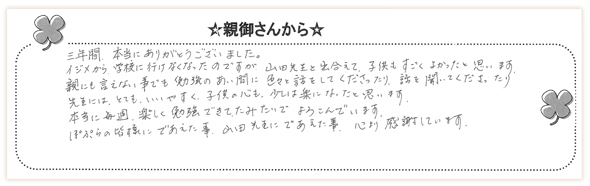 ☆親御さんから☆
三年間、本当にありがとうございました。
イジメから学校に行けなくなったのですが 山田先生と出会えて、子供もすごくよかったと思います。
親にも言えない事でも勉強のあい間に 色々と話をしてくださったり、話を聞いてくださったり
先生には、とても、いいやすく、子供の心も、少しは楽になったと思います。
本当に毎週、楽しく勉強できてたみたいで よろこんでいます。
ぽぷらの皆様にであえた事、山田先生にであえた事、心より感謝しています。